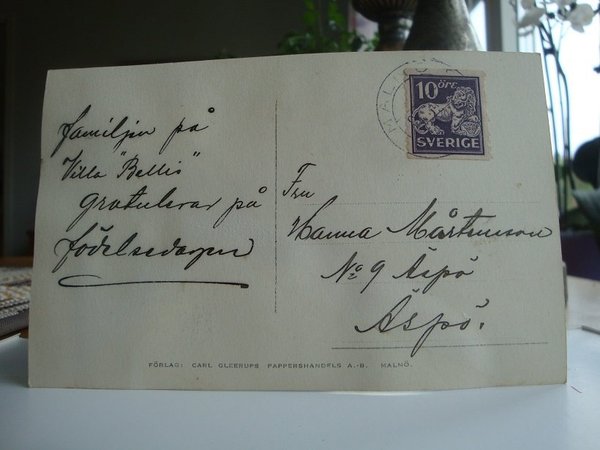 familjen på
Villa "Bellis"
gratulerar på
födelsedagen
MALMÖ
10 ÖRE
SVERIGE
Fru
Hanna Mårtensson
No 9 Äspö
Äspö.
FÖRLAG: CARL GLEERUPS PAPPERSHANDELS A.-B. MALMÖ.